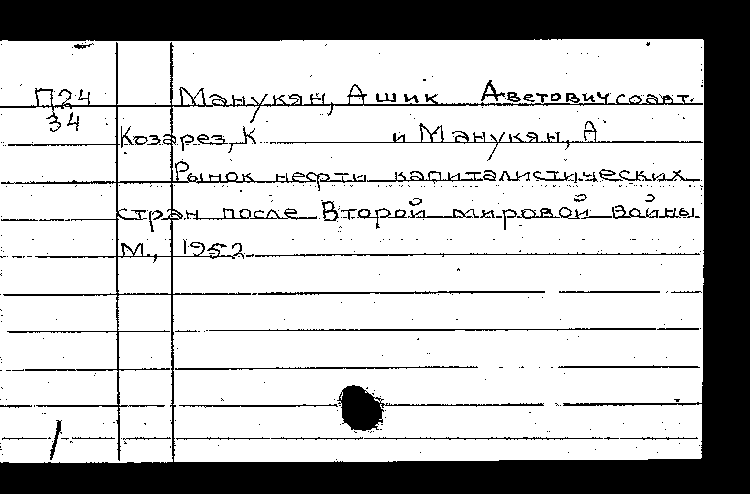 П24 Манукян, Ашик Аветович соавт.
34
Козарез, К и Манукян, А
Рынок нефти капиталистических
стран после Второй мировой войны
М., 1952